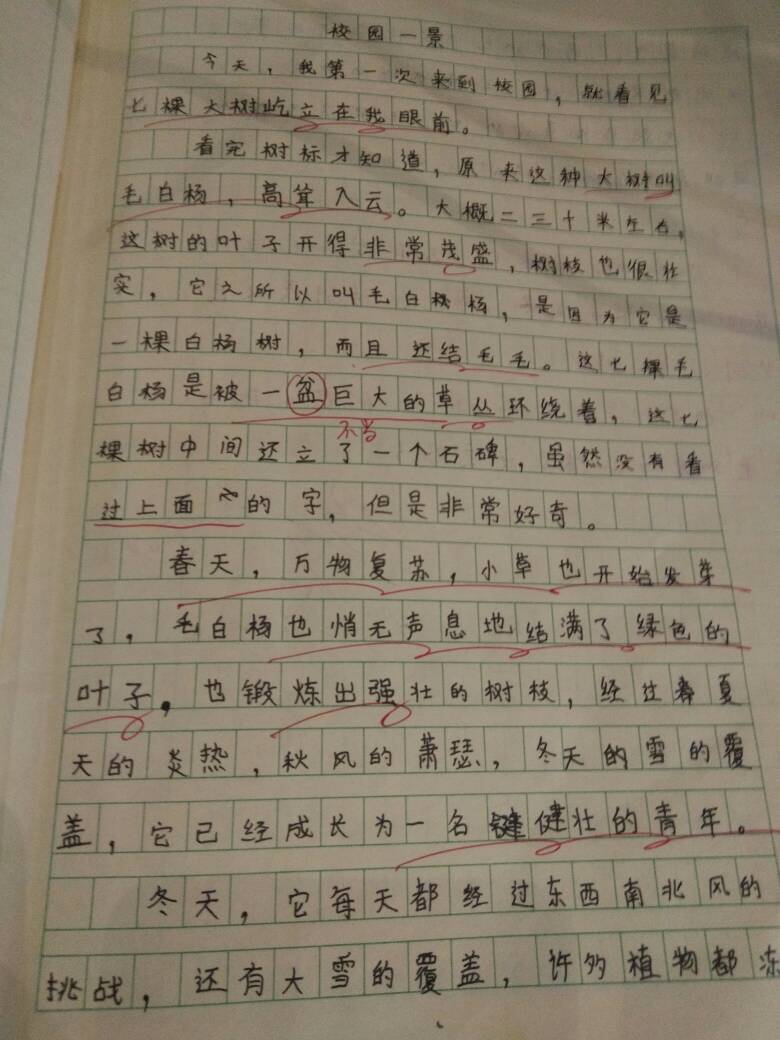 校园一景
今天，我第一次来到校园，就看见
七棵大树屹立在我眼前。
看完树标才知道，原来这种大树叫
毛白杨，高耸入云。大概二三十米左右。
这树的叶子开得非常茂盛，树枝也很壮
实，它之所以叫毛白杨，是因为它是
一棵白杨树，而且还结毛毛。这七棵毛
白杨是被一盆巨大的草丛环绕着，这七
不当
棵树中间还立了一个石碑，虽然没有看
过上面的字，但是非常好奇。
春天，万物复苏，小草也开始发芽
了，毛白杨也悄无声息地结满了绿色的
叶子，也锻炼出强壮的树枝，经过春夏
天的炎热，秋风的萧瑟，冬天的雪的覆
盖，它已经成长为一名健壮的青年。
冬天，它每天都经过东西南北风的
挑战，还有大雪的覆盖，许多植物都冻